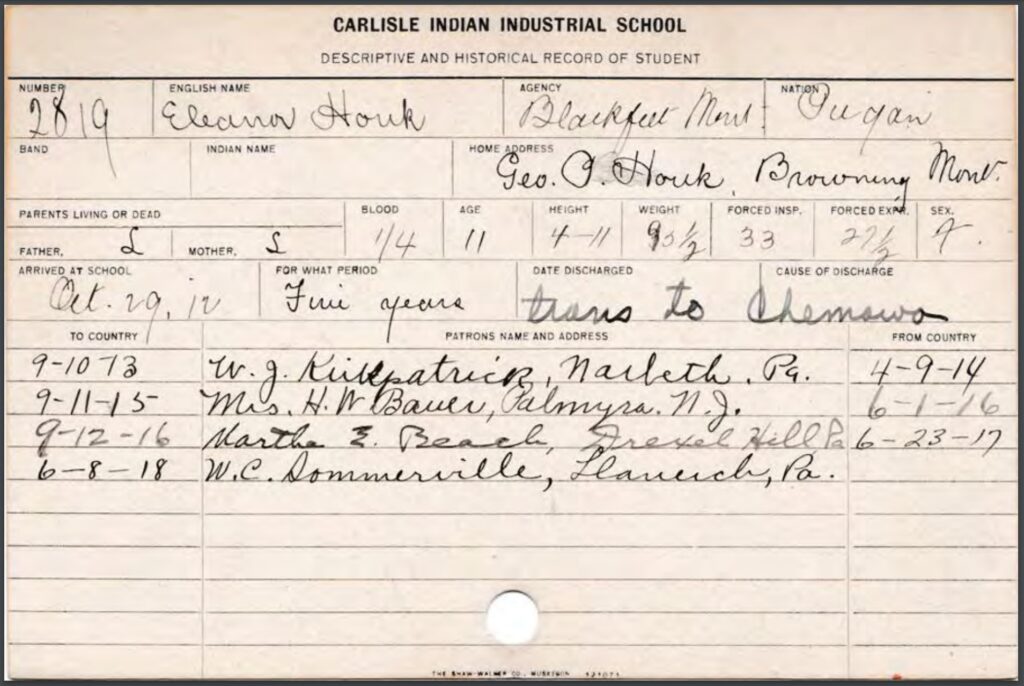 CARLISLE INDIAN INDUSTRIAL SCHOOL
DESCRIPTIVE AND HISTORICAL RECORD OF STUDENT
NUMBER ENGLISH NAME AGENCY NATION
2819 Eleanor Houk Blackfeet Mont. Piegan
BAND INDIAN NAME HOME ADDRESS
Geo. P. Houk, Browning Mont.
PARENTS LIVING OR DEAD BLOOD AGE HEIGHT WEIGHT FORCED INSP. FORCED EXPR. SEX.
FATHER, L MOTHER, L 1/4 11 4-11 95½ 33 27½ F.
ARRIVED AT SCHOOL FOR WHAT PERIOD DATE DISCHARGED CAUSE OF DISCHARGE
Oct. 29, 12 Five years trans to Chemawa
TO COUNTRY PATRONS NAME AND ADDRESS FROM COUNTRY
9-10-13 W. J. Kirkpatrick, Narbeth, Pa. 4-9-14
9-11-15 Mrs. H. W. Bauer, Palmyra. N.J. 6-1-16
9-12-16 Martha E. Beach, Drexel Hill Pa 6-23-17
6-8-18 W.C. Sommerville, Llanerch, Pa.
THE SHAW-WALKER CO., MUSKEGON 121071